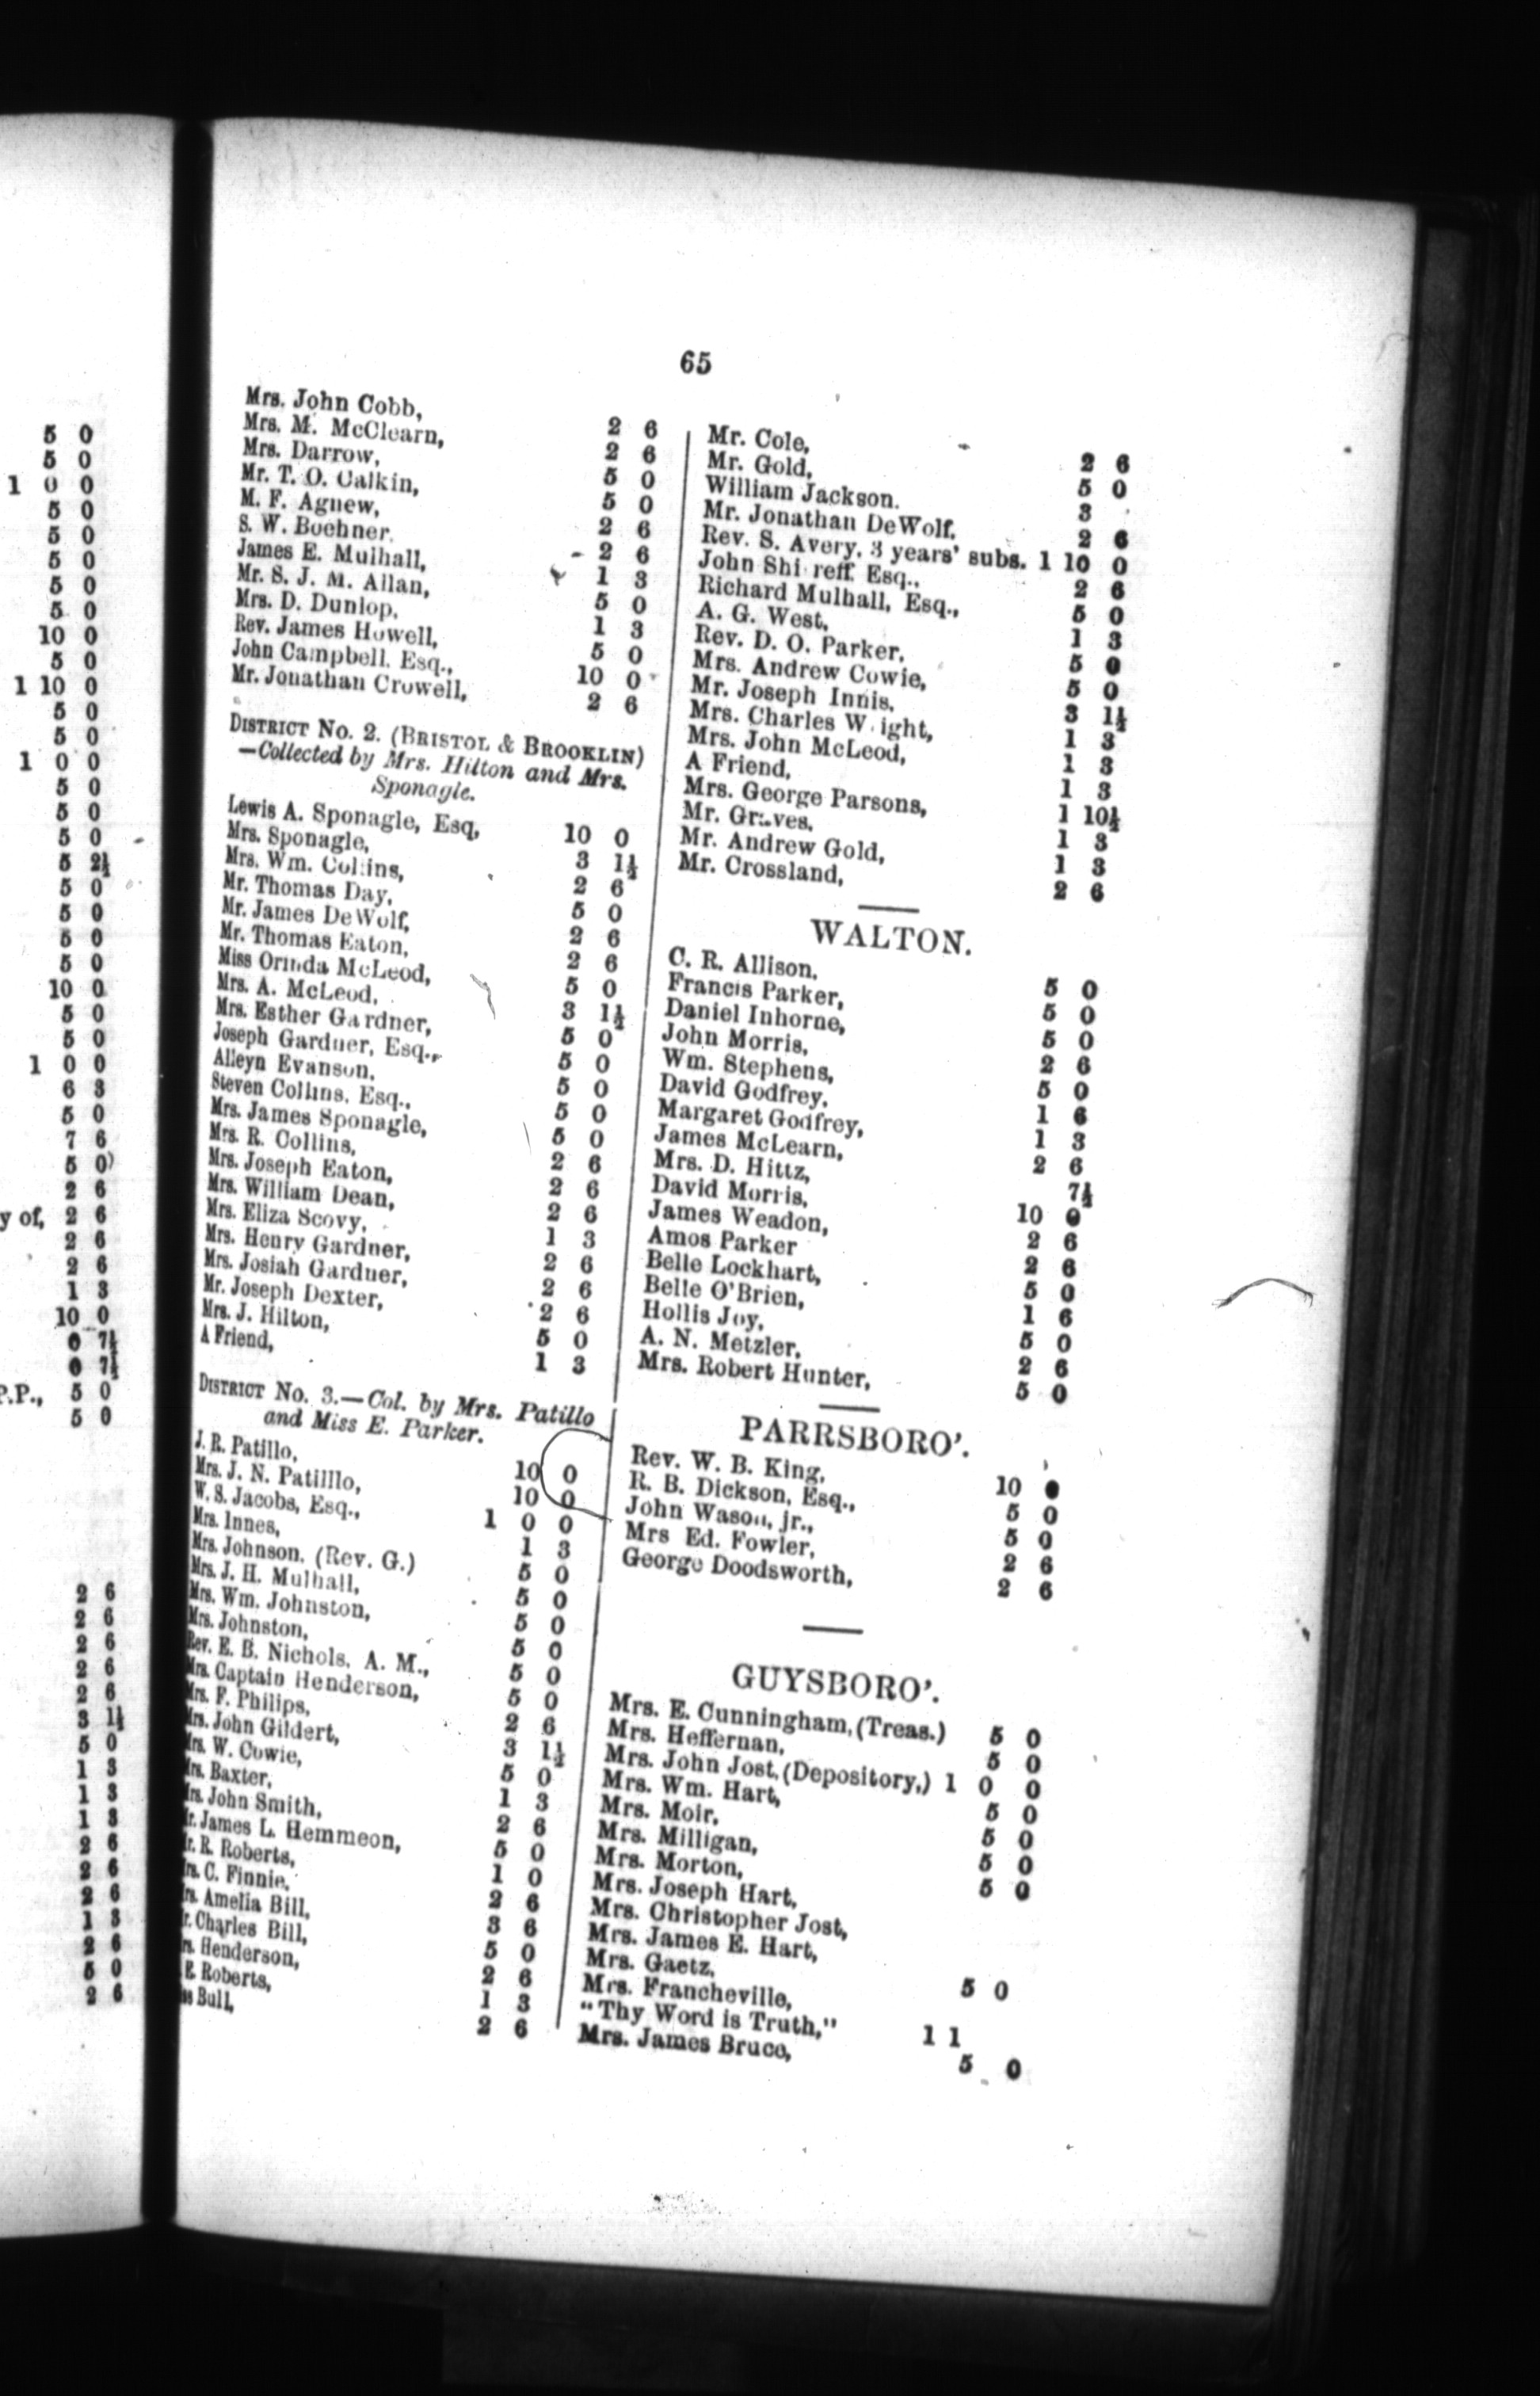 5 0
5 0
1 0 0
5 0
5 0
5 0
5 0
5 0
10 0
5 0
1 10 0
5 0
5 0
1 0 0
5 0
5 0
5 0
5 2½
5 0
5 0
5 0
5 0
10 0
5 0
5 0
1 0 0
6 3
5 0
7 6
5 0
2 6
y of, 2 6
2 6
2 6
1 3
10 0
0 7½
0 7½
P.P., 5 0
5 0
2 6
2 6
2 6
2 6
2 6
3 1½
5 0
1 3
1 3
1 3
2 6
2 6
2 6
1 3
2 6
5 0
2 6
65
Mrs. John Cobb, 2 6
Mrs. M. McClearn, 2 6
Mrs. Darrow, 5 0
Mr. T. O. Calkin, 5 0
M. F. Agnew, 2 6
S. W. Boehner. 2 6
James E. Mulhall, 1 3
Mr. S. J. M. Allan, 5 0
Mrs. D. Dunlop, 1 3
Rev. James Howell, 5 0
John Campbell. Esq., 10 0
Mr. Jonathan Crowell, 2 6
DISTRICT No. 2. (BRISTOL & BROOKLIN)
—Collected by Mrs. Hilton and Mrs.
Sponagle.
Lewis A. Sponagle, Esq, 10 0
Mrs. Sponagle, 3 1½
Mrs. Wm. Collins, 2 6
Mr. Thomas Day, 5 0
Mr. James DeWolf, 2 6
Mr. Thomas Eaton, 2 6
Miss Orinda McLeod, 5 0
Mrs. A. McLeod, 3 1½
Mrs. Esther Gardner, 5 0
Joseph Gardner, Esq., 5 0
Alleyn Evanson, 5 0
Steven Collins, Esq., 5 0
Mrs. James Sponagle, 5 0
Mrs. R. Collins, 2 6
Mrs. Joseph Eaton, 2 6
Mrs. William Dean, 2 6
Mrs. Eliza Scovy, 1 3
Mrs. Henry Gardner, 2 6
Mrs. Josiah Gardner, 2 6
Mr. Joseph Dexter, 2 6
Mrs. J. Hilton, 5 0
A Friend, 1 3
DISTRICT No. 3.—Col. by Mrs. Patillo
and Miss E. Parker.
J. R. Patillo, 10 0
Mrs. J. N. Patilllo, 10 0
W. S. Jacobs, Esq., 1 0 0
Mrs. Innes, 1 3
Mrs. Johnson. (Rev. G.) 5 0
Mrs. J. H. Mulhall, 5 0
Mrs. Wm. Johnston, 5 0
Mrs. Johnston, 5 0
Rev. E. B. Nichols. A. M., 5 0
Mrs. Captain Henderson, 5 0
Mrs. F. Philips, 2 6
Mrs. John Gildert, 3 1½
Mrs. W. Cowie, 5 0
Mrs. Baxter, 1 3
Mrs. John Smith, 2 6
Mr. James L. Hemmeon, 5 0
Mr. R. Roberts, 1 0
Mrs. C. Finnie, 2 6
Mrs. Amelia Bill, 3 6
Mr. Charles Bill, 5 0
rs. Henderson, 2 6
E. Roberts, 1 3
ss Bull, 2 6
Mr. Cole, 2 6
Mr. Gold, 5 0
William Jackson. 3
Mr. Jonathan DeWolf, 2 6
Rev. S. Avery, 3 years' subs. 1 10 0
John Shi reff. Esq., 2 6
Richard Mulhall, Esq., 5 0
A. G. West, 1 3
Rev. D. O. Parker, 5 0
Mrs. Andrew Cowie, 5 0
Mr. Joseph Innis, 3 1½
Mrs. Charles W ight, 1 3
Mrs. John McLeod, 1 3
A Friend, 1 3
Mrs. George Parsons, 1 10½
Mr. Graves, 1 3
Mr. Andrew Gold, 1 3
Mr. Crossland, 2 6
WALTON.
C. R. Allison, 5 0
Francis Parker, 5 0
Daniel Inhorne, 5 0
John Morris, 2 6
Wm. Stephens, 5 0
David Godfrey, 1 6
Margaret Godfrey, 1 3
James McLearn, 2 6
Mrs. D. Hittz, 7½
David Morris, 10 0
James Weadon, 2 6
Amos Parker 2 6
Belle Lockhart, 5 0
Belle O'Brien, 1 6
Hollis Joy, 5 0
A. N. Metzler, 2 6
Mrs. Robert Hunter, 5 0
PARRSBORO'.
Rev. W. B. King, 10 0
R. B. Dickson, Esq., 5 0
John Wason, jr., 5 0
Mrs Ed. Fowler, 2 6
George Doodsworth, 2 6
GUYSBORO'.
Mrs. E. Cunningham, (Treas.) 5 0
Mrs. Heffernan, 5 0
Mrs. John Jost, (Depository,) 1 0 0
Mrs. Wm. Hart, 5 0
Mrs. Moir, 5 0
Mrs. Milligan, 5 0
Mrs. Morton, 5 0
Mrs. Joseph Hart,
Mrs. Christopher Jost,
Mrs. James E. Hart,
Mrs. Gaetz, 5 0
Mrs. Francheville,
"Thy Word is Truth," 1 1
Mrs. James Bruce, 5 0